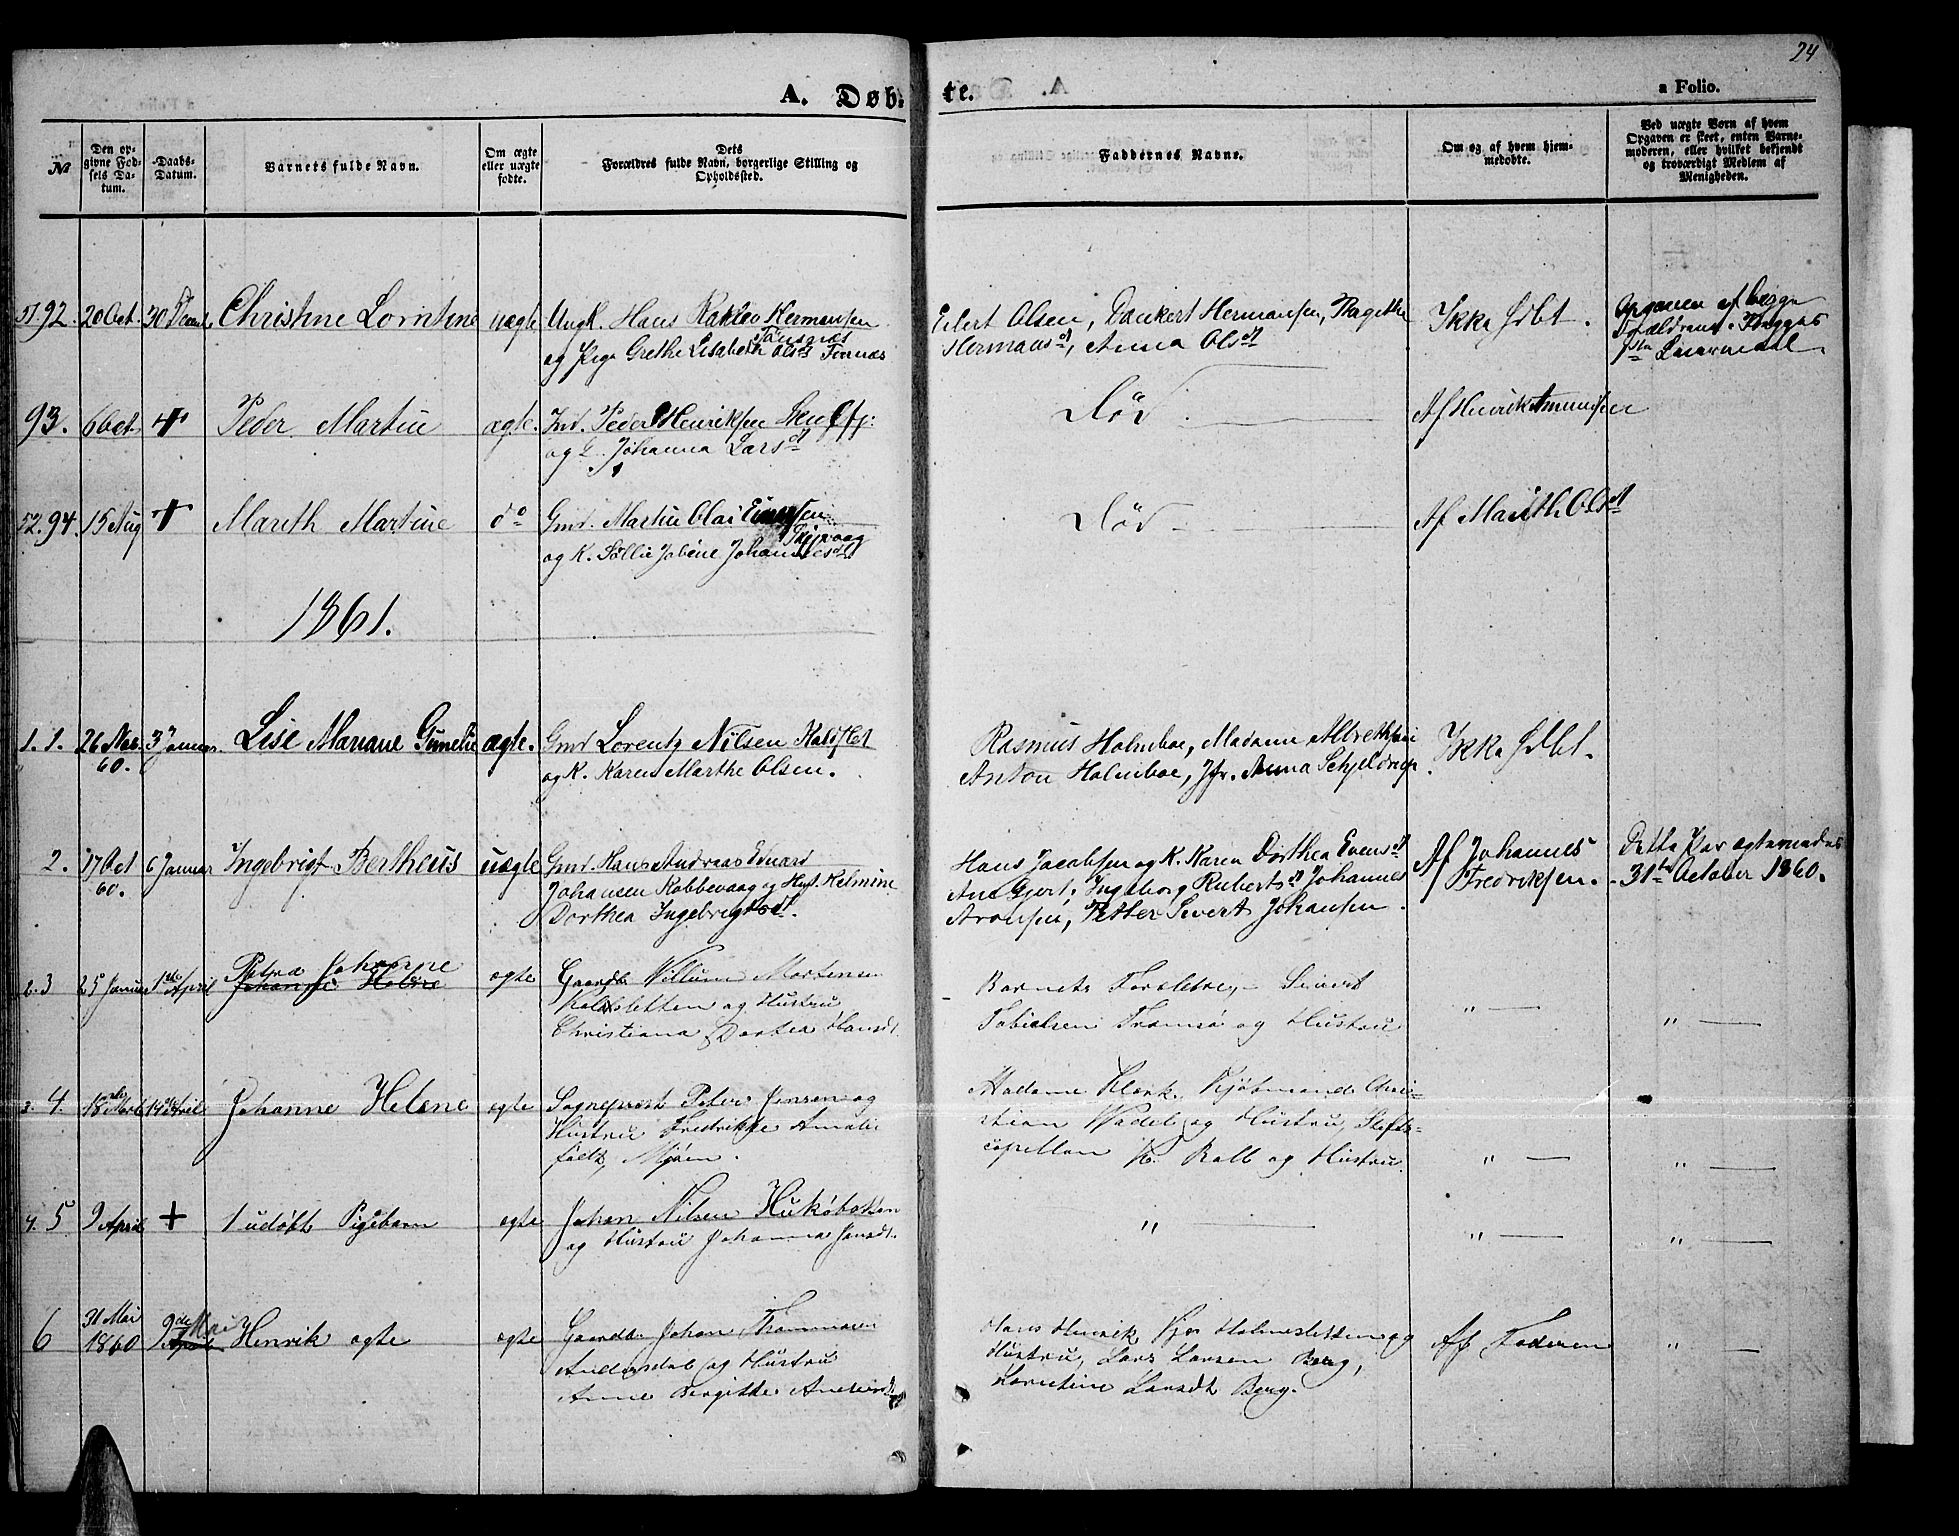 24
A. Døb- te.
a Folio.
No
Den op-
givne Fød-
sels Da-
tum.
Daabs-
Datum.
Barnets fulde Navn.
Om ægte
eller uægte
fødte.
Dets
Forældres fulde Navn, borgerlige Stilling og
Opholdssted.
Faddernes Navne.
Om og af hvem hjem-
medøbte.
Ved uægte Børn af hvem
Opgaven er skeet, enten Barne-
moderen, eller hvilket bekjendt
og troværdigt Medlem af
Menigheden.
51. 92. 20 Oct. 30 Decemb Christine Lorntine uægte Ungk. Hans Hermansen
Tønsnæs
og Pige Grethe Lisabeth Olsd Finnæs
Eilert Olsen, Dankert Hermansen, Ragithe
Hermansd, Anna Olsd
Ikke Hdbt.
Opgaven af begge
Forældrene
93. 6 Oct. + Peder Martin ægte. Ind. Peder Henriksen
og Johanna Larsd
Død
Af Henrik Amundsen
52. 94. 15 Aug + Mareth Martine do Gmd. Martin Olai
og K. Johannesd
Død
Af Marith Olsd
1861.
1. 1. 26 Nov. 60. 3 Januar Lise Mariane Gunelie ægte. Gmd Lorentz Nilsen Kalslet
og K. Karen Marthe Olsen.
Rasmus Holmboe, Madame
Anton Holmboe, Jfr. Anna Schjeldrup
Ikke Hdbt.
2. 17 Oct 60. 6 Januar Ingebrigt Bertheus uægte Gmd. Hans Andreas Edvard
Johansen Kobbevaag og Hust. Kelmine
Dorthea Ingebrigtsd.
Hans Jacobsen og K. Karen Dorthea Evensd
Ane Gjert. Ingeborg Rubertsd Johannes
Aronsen, Petter Sivert Johansen.
Af Johannes
Fredriksen.
Dette Par ægteviedes
31te October 1860.
2. 3 25 Januar 1ste April Petra Johanne
Johanne Helene
ægte Gaardb. Villum Mortensen
Kalsletten og Hustru
Christiana Dortea Hansdt.
Barnets Forældre, Sivert
Tobielsen Tromsø og Hustru
" —
" —
3. 4. 18de Marts 14de April Johanne Helene ægte Sogneprest Peter Jensen og
Hustru Fredrikke Amalie
født, Mjøen.
Madame Klerk. Kjøbmand Chri-
stian Wadel og Hustru, Stifts-
capellan K. Balb og Hustru
" —
" —
4. 5 9 April + 1 udøbt Pigebarn ægte Johan Nilsen Hukøbotten
og Hustru Johanna Jensdt.
" —
" —
" —
6 31 Mai 1860 9de Mai
April
Henrik ægte ægte Gaardb. Johan
Andersdal og Hustru
Anne Bergitte
Hans Henrik Holmesletten og
Hustru, Lars Larsen Berg,
Lorntine Larsdt Berg.
Af Faderen
" —